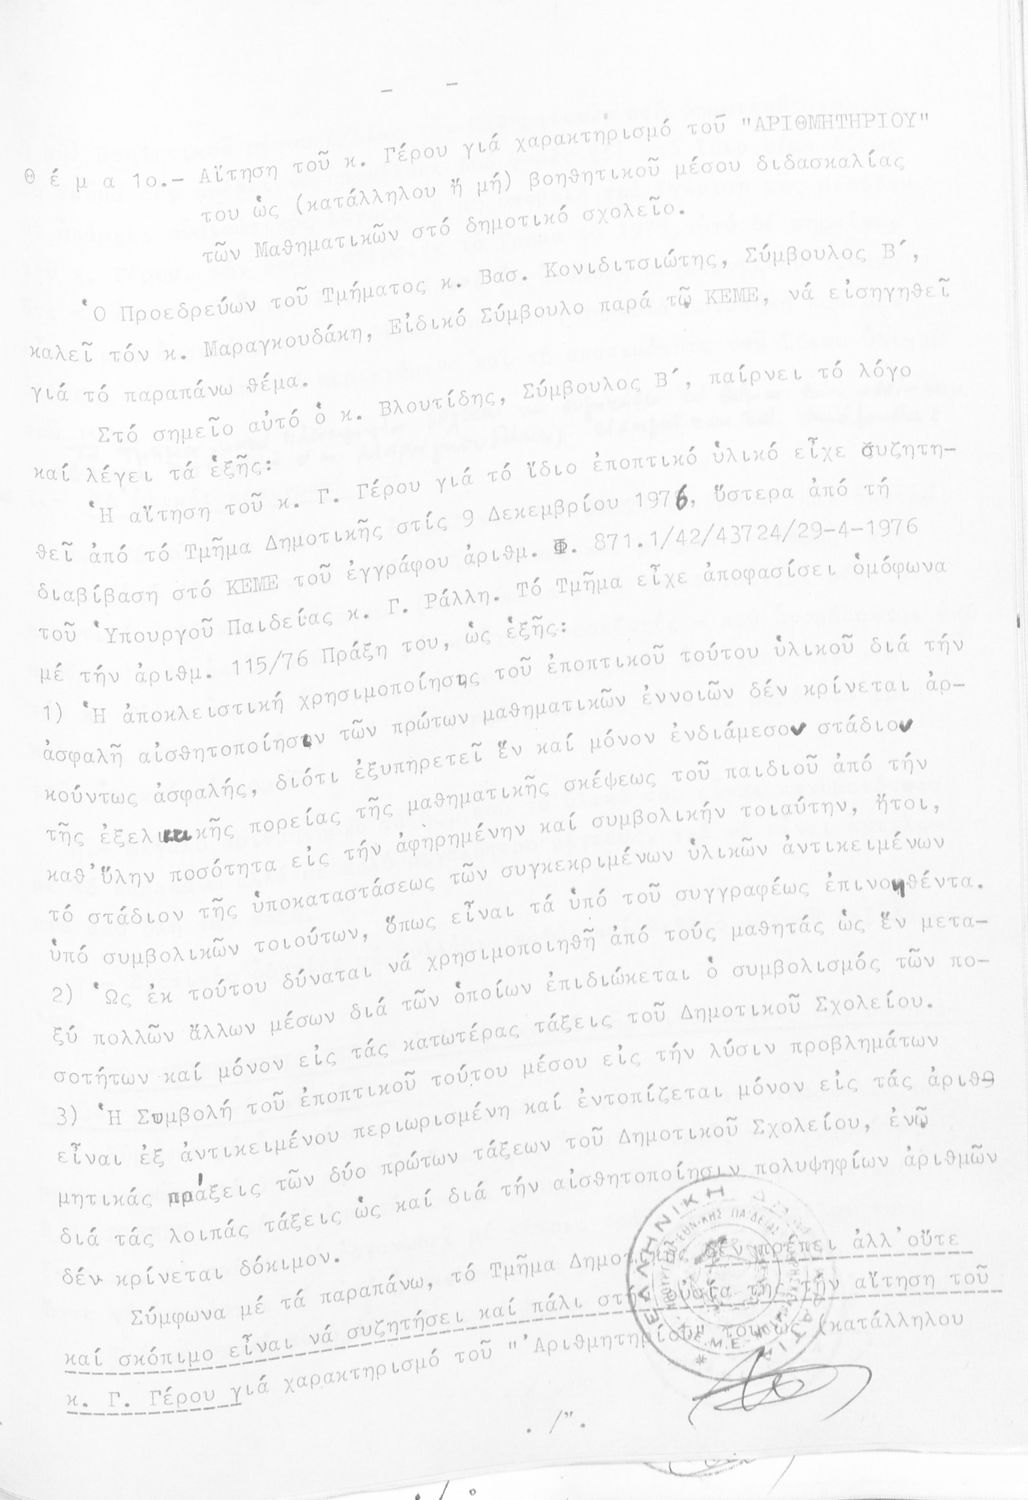 Θ έ μ α 1ο.- Αἴτηση τοῦ κ. Γέρου γιά χαρακτηρισμό τοῦ "ΑΡΙΘΜΗΤΗΡΙΟΥ"
του ὡς (κατάλληλου ἤ μή) βοηθητικοῦ μέσου διδασκαλίας
τῶν Μαθηματικῶν στό δημοτικό σχολεῖο.
Ὁ Προεδρεύων τοῦ Τμήματος κ. Βασ. Κονιδιτσιώτης, Σύμβουλος Β΄,
καλεῖ τόν κ. Μαραγκουδάκη, Εἰδικό Σύμβουλο παρά τῷ ΚΕΜΕ, νά εἰσηγηθεῖ
γιά τό παραπάνω θέμα.
Στό σημεῖο αὐτό ὁ κ. Βλουτίδης, Σύμβουλος Β΄, παίρνει τό λόγο
καί λέγει τά ἑξῆς:
Ἡ αἴτηση τοῦ κ. Γ. Γέρου γιά τό ἴδιο ἐποπτικό ὑλικό εἶχε συζητη-
θεῖ ἀπό τό Τμῆμα Δημοτικῆς στίς 9 Δεκεμβρίου 1976, ὕστερα ἀπό τή
διαβίβαση στό ΚΕΜΕ τοῦ ἐγγράφου ἀριθμ. Φ. 871.1/42/43724/29-4-1976
τοῦ Ὑπουργοῦ Παιδείας κ. Γ. Ράλλη. Τό Τμῆμα εἶχε ἀποφασίσει ὁμόφωνα
μέ τήν ἀριθμ. 115/76 Πράξη του, ὡς ἑξῆς:
1) Ἡ ἀποκλειστική χρησιμοποίησις τοῦ ἐποπτικοῦ τούτου ὑλικοῦ διά τήν
ἀσφαλῆ αἰσθητοποίησιν τῶν πρώτων μαθηματικῶν ἐννοιῶν δέν κρίνεται ἀρ-
κούντως ἀσφαλής, διότι ἐξυπηρετεῖ ἕν καί μόνον ἐνδιάμεσον στάδιον
τῆς ἐξελικτικῆς πορείας τῆς μαθηματικῆς σκέψεως τοῦ παιδιοῦ ἀπό τήν
καθ᾽ὕλην ποσότητα εἰς τήν ἀφηρημένην καί συμβολικήν τοιαύτην, ἤτοι,
τό στάδιον τῆς ὑποκαταστάσεως τῶν συγκεκριμένων ὑλικῶν ἀντικειμένων
ὑπό συμβολικῶν τοιούτων, ὅπως εἶναι τά ὑπό τοῦ συγγραφέως ἐπινοηθέντα.
2) Ὡς ἐκ τούτου δύναται νά χρησιμοποιηθῆ ἀπό τούς μαθητάς ὡς ἕν μετα-
ξύ πολλῶν ἄλλων μέσων διά τῶν ὁποίων ἐπιδιώκεται ὁ συμβολισμός τῶν πο-
σοτήτων καί μόνον εἰς τάς κατωτέρας τάξεις τοῦ Δημοτικοῦ Σχολείου.
3) Ἡ Συμβολή τοῦ ἐποπτικοῦ τούτου μέσου εἰς τήν λύσιν προβλημάτων
εἶναι ἐξ ἀντικειμένου περιωρισμένη καί ἐντοπίζεται μόνον εἰς τάς ἀριθ-
μητικάς πράξεις τῶν δύο πρώτων τάξεων τοῦ Δημοτικοῦ Σχολείου, ἐνῷ
διά τάς λοιπάς τάξεις ὡς καί διά τήν αἰσθητοποίησιν πολυψηφίων ἀριθμῶν
δέν κρίνεται δόκιμον.
Σύμφωνα μέ τά παραπάνω, τό Τμῆμα Δημοτικῆς δέν πρέπει ἀλλ᾽οὔτε
καί σκόπιμο εἶναι νά συζητήσει καί πάλι στήν οὐσία της τήν αἴτηση τοῦ
κ. Γ. Γέρου γιά χαρακτηρισμό τοῦ "Ἀριθμητηρίου" του ὡς (κατάλληλου
ΕΛΛΗΝΙΚΗ
Κ.Ε.Μ.Ε.
./".